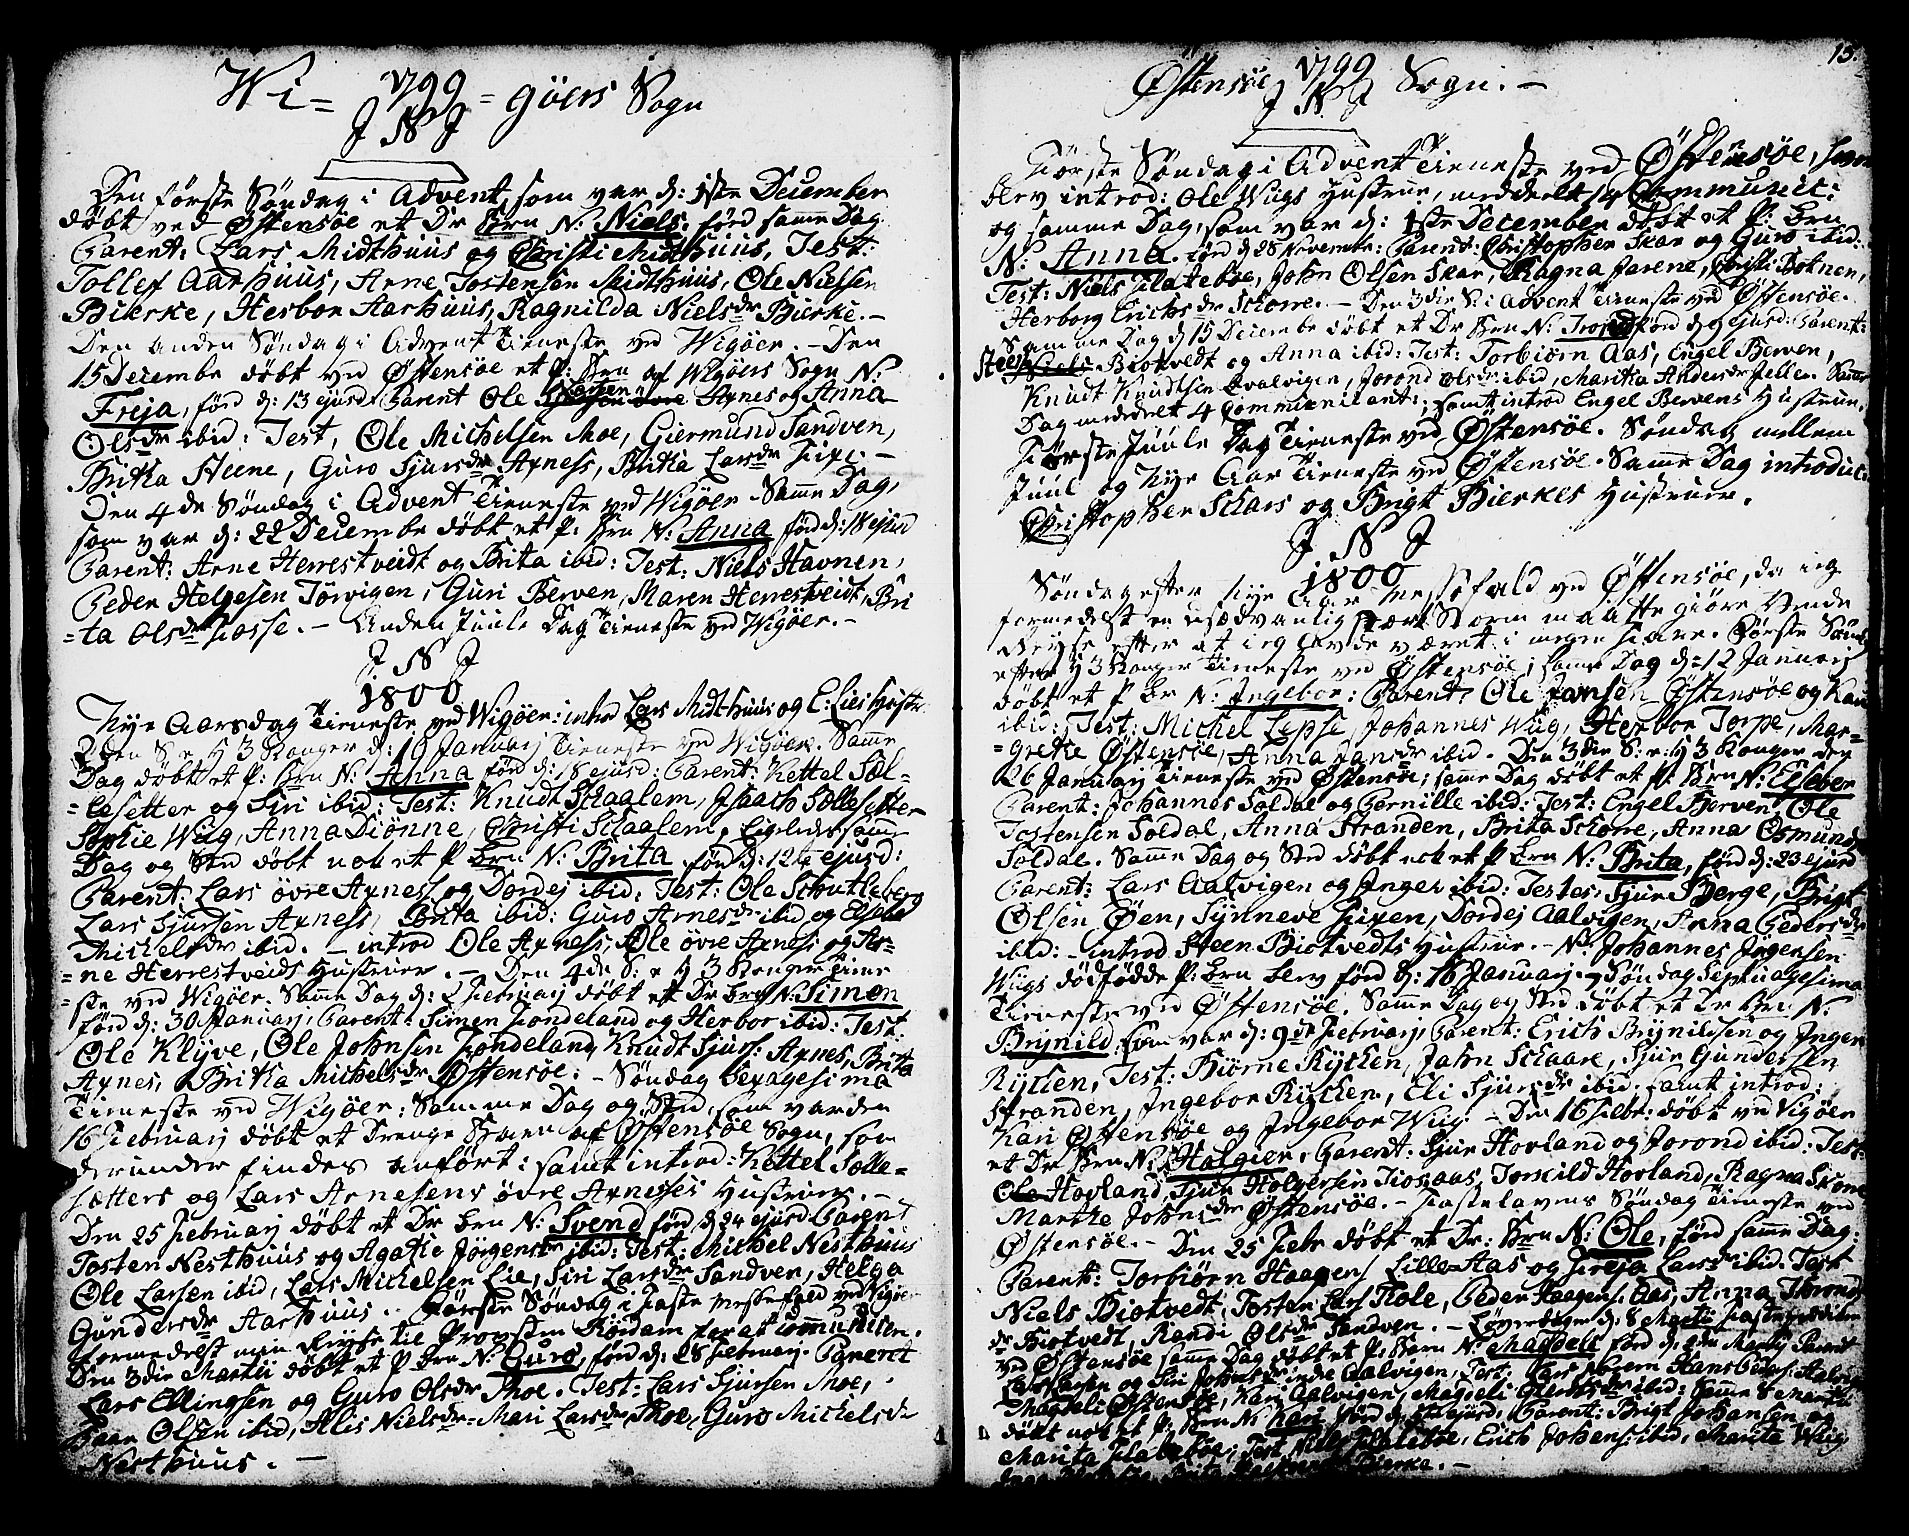 Wi= 1799 =göers Sogn
J N J
Den første Søndag i Advent, som var d: 1ste December
døbt ved Østensøe et Dr Brn N: Niels. förd samme Dag.
Parent: Lars Midthuus og Christi Midthuus, Test:
Tollef Aarhuus, Arne Tostensen Midthuus, Ole Nielsen
Bierke, Herbor Aarhuus, Ragnilda Nielsdr Bierke. —
Den anden Søndag i Advent Tieneste ved Wigöer. — Den
15 Decembr döbt ved Østensöe et P: Brn af Wigöers Sogn N:
Freja, förd d: 13 ejusd: Parent Ole Axnes og Anna
Olsdr ibid: Test, Ole Michelsen Moe, Giermund Sandven,
Britha Steene, Guro Sjursdr Axness, Britha Larsdr Fixe. —
Den 4de Søndag i Advent Tieneste ved Wigöer. Samme Dag,
som var d: 22 Decembr döbt et P: Brn N: Anna förd d: ejusd
Parent: Arne Herrestveidt og Brita ibid: Test: Niels Havnen,
Peder Helgesen Törvigen, Guri Berven, Maren Herrestveidt, Bri
=ta Olsdr Fosse. — Anden Juule Dag Tieneste ved Wigöer. —
J N J
1800
Nye Aarsdag Tieneste ved Wigöer: introd Lars Midthuus og E: Lies Hustr
2den S: e: H 3 Konger d: 19 Januarij Tieneste ved Wigöer. Samme
Dag döbt et P: Brn N: Anna förd d: 18 ejusd: Parent: Kettel Sol-
=lesetter og Siri ibid: Test: Knudt Skaalem, Isaach Sollesetter
Sophie Wiig, Anna Diönne, Christi Skaalem, Ligeledes samme
Dag og Sted döbt nok et P Brn N: Brita förd d: 12te ejusd:
Parent: Lars övre Axness og Dordej ibid: Test: Ole Schutleberg
Lars Sjursen Axness, Brita ibid: Guro Arnesdr ibid og Elsebe
Michelsdr ibid. — introd Ole Axness, Ole övre Axness og Ar=
=ne Herrestveids Hustruer. — Den 4de S: e H 3 Konger Tiene
=ste ved Wigöer. Samme Dag d: 2 Februarij döbt et Dr brn N: Simen
förd d: 30 Januarij, Parent: Simen Fondeland og Herbor ibid: Test:
Ole Klyve, Ole Johnsen Fondeland, Knudt Sjurs: Axnes, Brita
Axnes, Britha Michelsdr Østensöe: — Søndag Sexagesima
Tieneste ved Wigöer: Samme Dag og Sted, som var den
16 Februarij döbt et Drenge Barn af Østensöe Sogn, som
derunder findes anført: samt introd: Kettel Solle=
sætters og Lars Arnesens övre Axnesses Hustruer. —
Den 25 Februarij döbt et Dr brn N: Svend förd d: 24 ejusd Parent
Tosten Nesthuus og Agatie Jörgensdr ibid: Test: Michel Nesthuus
Ole Larsen ibid, Lars Michelsen Lie, Siri Larsdr Sandven, Helga
Gundersdr Aarhuus. . Første Søndag i Faste Messefald ved Wigöer
formedelst min Reyse til Provsten Röidam for at communicere.
Den 3die Martii döbt et P brn N: Guro, förd d: 28 Februarij. Parent
Lars Ellingsen og Guro Olsdr Moe. Test: Lars Sjursen Moe,
Olsen ibid, Alis Nielsdr= Mari Larsdr Moe, Guro Michelsdr
Nesthuus. —
13.
Østensöe 1799 Sogn. —
J N J
Første Søndag i Advent Tieneste ved Østensøe, som
blev introd: Ole Wiigs Hustrue, meddeelt 14 Communic:
og samme Dag, som var d: 1ste December döbt et P: brn
N: Anna. förd d 28 Novembr: Parent: Christopher Skar og Guro ibid:
Test: Niels Flatebøe, John Olsen Skar, Ragna Jarene, Christi Botnen,
Herborg Erichsdr Skorre. — Den 3die S: i Advent Tieneste ved Østensöe.
Samme Dag d 15 Decembr döbt et Dr Brn N: förd d 9 ejusd: Parent:
Steen Niels Biotvedt og Anna ibid: Test: Torbiörn Aas, Engel Berven,
Knudt Knudtsen Qvalvigen, Jorond Olsdr ibid, Maritha Andersdr Jelle. Samme
Dag meddeelt 4 Communicant:, samt introd Engel Bervens Hustrue.
Første Juule Dag Tieneste ved Østensöe. Søndag mellem
Juul og Nye Aar Tieneste ved Østensöe. Samme Dag introduc:
Christopher Skars og Brigt Bierkes Hustruer.
J N J
1800
Søndag efter Nye Aar Messefald ved Østensöe, da ieg
formedelst en usædvanlig stærk Storm maatte giöre Vende
Reyse efter at ieg havde været i megen Fare. Første Sönd:
efter H 3 Konger Tieneste ved Østensöe; samme Dag d: 12 Januarij
döbt et P Br N: Ingebor: Parent: Ole Jansen Østensöe og Kari
ibid: Test: Michel Lepse, Johannes Wiig, Herbor Torpe, Mar=
=grethe Østensöe, Anna Jansdr ibid. Den 3die S: e: H 3 Konger den
26 Januarij Tieneste ved Østensöe; samme Dag döbt et P: Brn N: Elseber
Parent: Johannes Soldal og Pernille ibid: Test: Engel Berven, Ole
Tostensen Soldal, Anna Stranden, Brita Skorre, Anna Osmunds
Soldal. Samme Dag og Sted döbt nok et P brn N: Brita, förd d: 23 ejusd
Parent: Lars Aalvigen og Inger ibid: Testes, Sjur Berge, Brigt
Olsen Øen, Synneve Fixen, Dordej Aalvigen, Anna Pedersdr
ibid: — introd Steen Biotvedts Hustrue. — N: Johannes Jörgensen
Wiigs dödfödde P: brn blev förd d: 16 Januarij. Søndag Septuagesima
Tieneste ved Østensöe. Samme Dag og Sted döbt et Dr Brn N:
Brynild, som var d: 9de Februarij, Parent: Erich Brynildsen og Inger
Rykken, Test: Biörne Rykken, Jahn Skaare, Sjur Gundersen
Stranden, Ingebor Rikken, Eli Sjursdr ibid. samt introd:
Kari Østensöe og Ingebor Wiig. — Den 16 Febr: döbt ved Vigöer
et Dr Brn N: Holgier, Parent: Sjur Hovland og Jorond ibid: Test:
Ole Hovland, Sjur Holgersen Tiosaas, Torkild Hovland, Ragna Skorre
Marthe Johnsdr Østensöe. — Fastelavens Søndag Tieneste ved
Østensöe. — Den 25 Febr döbt et Dr: Brn N: Ole, förd samme Dag:
Parent: Torbiörn Haagens Lille-Aas og Freja Larsdr ibid. Test
Niels Biotvedt, Tosten Lars: Role, Peder Haagens: Aas, Anna Thrond
dr Biotvedt, Randi Olsdr Sandven. — Löverdagen d: 8 Martii Fasteprædiken
ved Østensöe samme Dag döbt et P: Barn N: Magdeli förd d: 2den Martij Parent
Lars Larsen og Siri Johnsdr indre Aalvigen, Test, Lars Hans Peders: Aalvig
Magdeli Østensöe, Kari Aalvigen, Magdeli ibid: Samme 8 Martii
döbt nok et P: Brn N: Kari förd d: ejusd, Parent: Brigt Johansen og
Marita Flatebøe, Test Niels Flatebøe, Erich Johans: ibid, Marita Wiig
Bierke. —